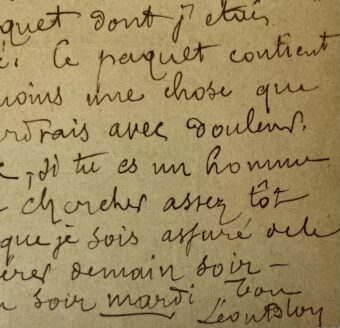 quet dont j'étais
é. Ce paquet contient
moins une chose que
erdrais avec douleur.
c, si tu es un homme
chercher assez tôt
que je sois assuré de le
érer demain soir –
n soir mardi Ton
Léon Bloy